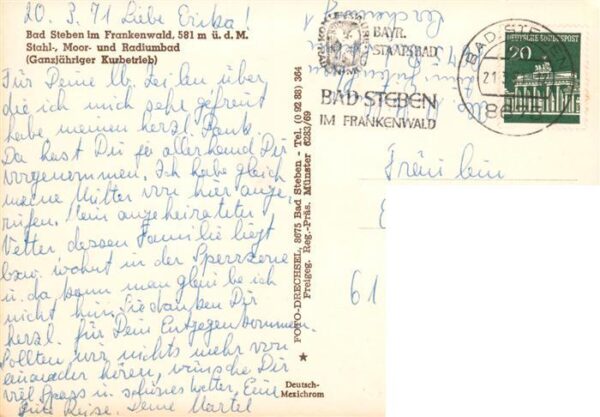 20. 3. 71 Liebe Erika!
Bad Steben im Frankenwald, 581 m ü. d. M.
Stahl-, Moor- und Radiumbad
(Ganzjähriger Kurbetrieb)
Für Deine lb. Zeilen über
die ich mich sehr gefreut
habe meinen herzl. Dank.
Da hast Du ja allerhand Dir
vorgenommen. Ich habe gleich
meine Mutter von hier ange-
rufen. Mein angeheirateter
Vetter dessen Familie liegt
bzw. wohnt in der Sperrzone
u. da kann man glaube ich
nicht hin. Sie danken Dir
herzl. für Dein Entgegenkommen.
Sollten wir nichts mehr von
einander hören, wünsche Dir
viel Spass u. schönes Wetter. Eine
gute Reise. Deine
FOTO-DRECHSEL, 8675 Bad Steben - Tel. (0 92 88) 364
Freigeg. Reg.-Präs. Münster 6283/69
Deutsch-
Mexichrom
BAYR.
STAATSBAD
BAD STEBEN
IM FRANKENWALD
BAD STEBEN
21.3.
DEUTSCHE BUNDESPOST
20
Fräulein
E
61